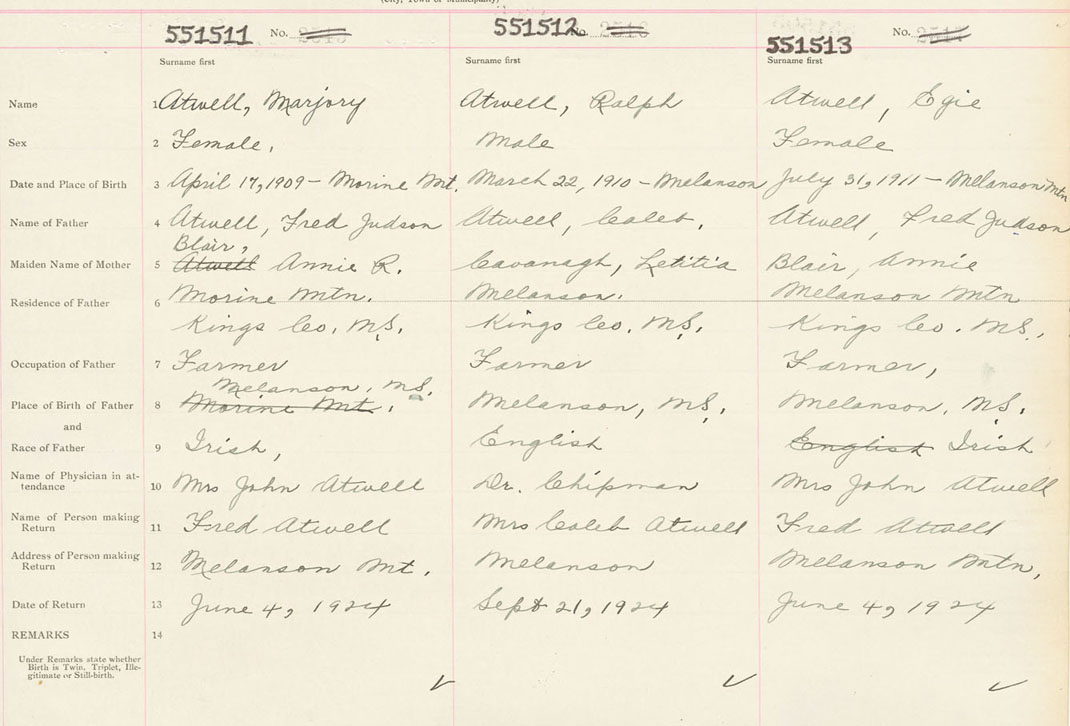 (City, Town or Municipality)
551511 No. 2515 551512 No. 2516 551513 No.
Surname first Surname first Surname first
Name 1 Atwell, Marjory Atwell, Ralph Atwell, Egie
Sex 2 Female, Male Female
Date and Place of Birth 3 April 17, 1909 - Morine Mt. March 22, 1910 - Melanson July 31, 1911 - Melanson Mtn
Name of Father 4 Atwell, Fred Judson Atwell, Caleb. Atwell, Fred Judson
Blair,
Maiden Name of Mother 5 Atwell Annie R. Cavanagh, Letitia Blair, Annie
Residence of Father 6 Morine Mtn. Melanson. Melanson Mtn
Kings Co. N.S. Kings Co. N.S. Kings Co. N.S.
Occupation of Father 7 Farmer Farmer Farmer,
Melanson, N.S.
Place of Birth of Father 8 Morine Mt. Melanson, N.S. Melanson, N.S.
and
Race of Father 9 Irish, English English Irish
Name of Physician in at-
tendance 10 Mrs John Atwell Dr. Chipman Mrs John Atwell
Name of Person making
Return 11 Fred Atwell Mrs Caleb Atwell Fred Atwell
Address of Person making
Return 12 Melanson Mt. Melanson Melanson Mtn,
Date of Return 13 June 4, 1924 Sept 21, 1924 June 4, 1924
REMARKS 14
Under Remarks state whether
Birth is Twin, Triplet, Ille-
gitimate or Still-birth.